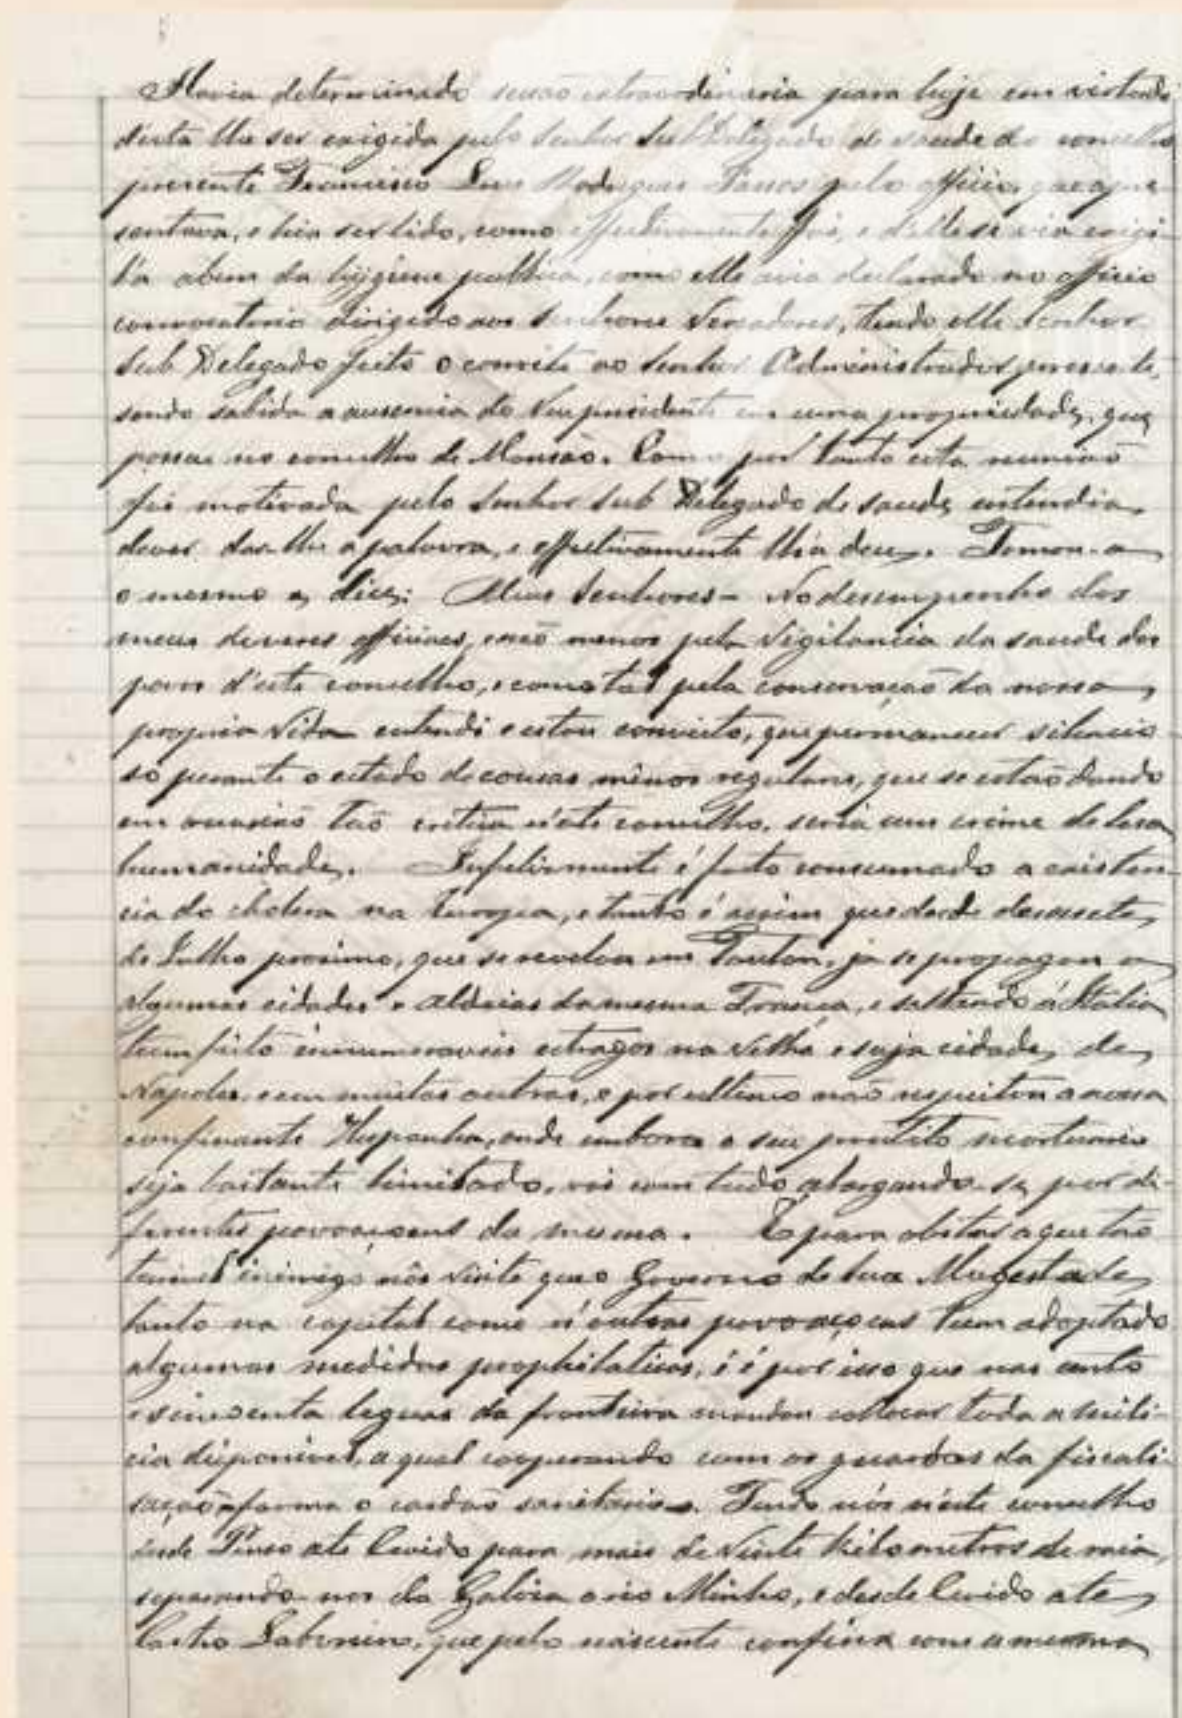 Havia determinado sessão extraordinaria para hoje em virtude
desta lhe ser exigida pelo senhor Sub Delegado de saude do concelho
presente Francisco Luis Rodrigues Passos pelo officio, que apre-
sentava, e hia ser lido, como effectivamente foi, e delle se via exigi-
l'a abem da hygiene publica, como elle avia declarado no officio
convocatorio dirigido aos senhores Vereadores, tendo elle senhor
Sub Delegado feito o convite ao senhor Administrador presente,
sendo sabida a ausencia do Vice presidente em uma propriedade, que
possue no concelho de Monsão. Como por tanto esta reunião
foi motivada pelo senhor Sub Delegado de saude, entendia
dever dar-lhe a palavra, e effectivamente lh'a deu. Tomou-a
o mesmo e, dice: Meus Senhores - No desempenho dos
meus deveres officiaes, e não menos pela vigilancia da saude dos
povos d'este concelho, e como tal pela conservação da nossa
propria vida entendi e estou convicto, que permanecer silencio-
so perante o estado de cousas menos regulares, que se estão dando
em occasião tão critica n'este concelho, seria um crime de lesa
humanidade. Infelismente é facto consumado a existen-
cia do cholera na Europa, e tanto é assim que desde desassete,
de Julho proximo, que se revelou em Toulon, já se propagou a
algumas cidades e aldeias da mesma França, e saltando á Italia
tem feito innumeraveis estragos na velha e suja cidade, de
Napoles, e em muitas outras, e por ultimo não respeitou a nossa
confinante Hespanha, onde embora o seu mortuario
seja bastante limitado, vai com tudo alargando-se por di-
ferentes povoaçoens da mesma. E para obstar a que tão
terrivel inimigo nós visite que o Governo de Sua Magestade
tanto na capital como n'outras povoaçoens tem adoptado
algumas medidas prophilaticas, é é por isso que nas cento
e sincoenta leguas da fronteira mandou collocar toda a mili-
cia disponivel, a qual cooperando com os guardas da fiscali-
sação forma o cordão sanitario. Tendo nós n'este concelho
desde Penso até Cevide para mais de vinte kilometros de raia,
separando-nos da Galiza o rio Minho, e desde Cevide até
Castro Laboreiro, que pelo nascente confina com a mesma